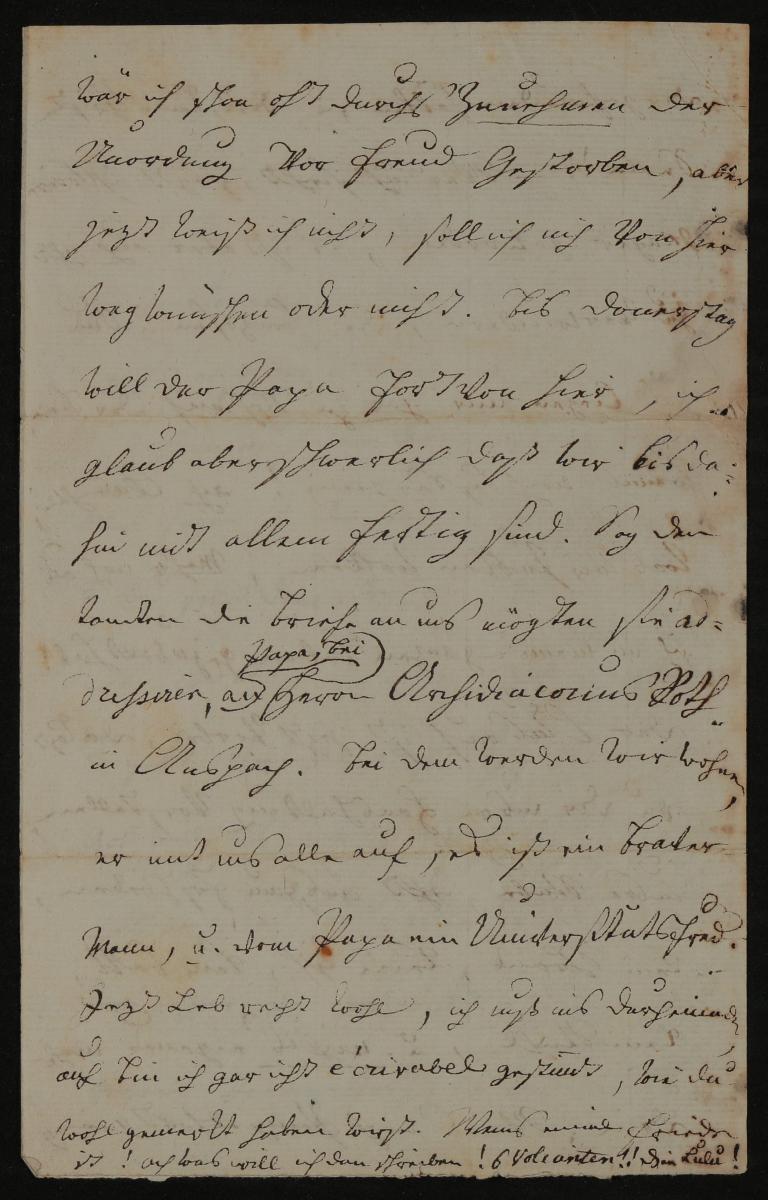 wär ich schon oft durchs Zunehmen der
Unordnung vor Freud Gestorben, aber
jezt weiß ich nicht, soll ich mich von hier
weg wünschen oder nicht. bis Donerstag
will der Papa fort von hier, ich
glaub aber schwerlich daß wir bis da=
hin mit allem fertig sind. Sag den
tanten die briefe an uns mögten sie ad=
Papa, bei
dressiren, an Herrn Archidiaconus Roth
in Anspach. bei dem werden wir wohnen,
er nimt uns alle auf, es ist ein braver
Mann, u. vom Papa ein Universitätsfreud.
Jezt Leb recht wohl, ich muß ins Durcheinander
auf bin ich gar nicht écrivabel gestimt, wie du
wohl gemerkt haben wirst. Wens einmal Friede
ist! ach was will ich dan schreiben! 6 Volianten!! Dein Lulu!